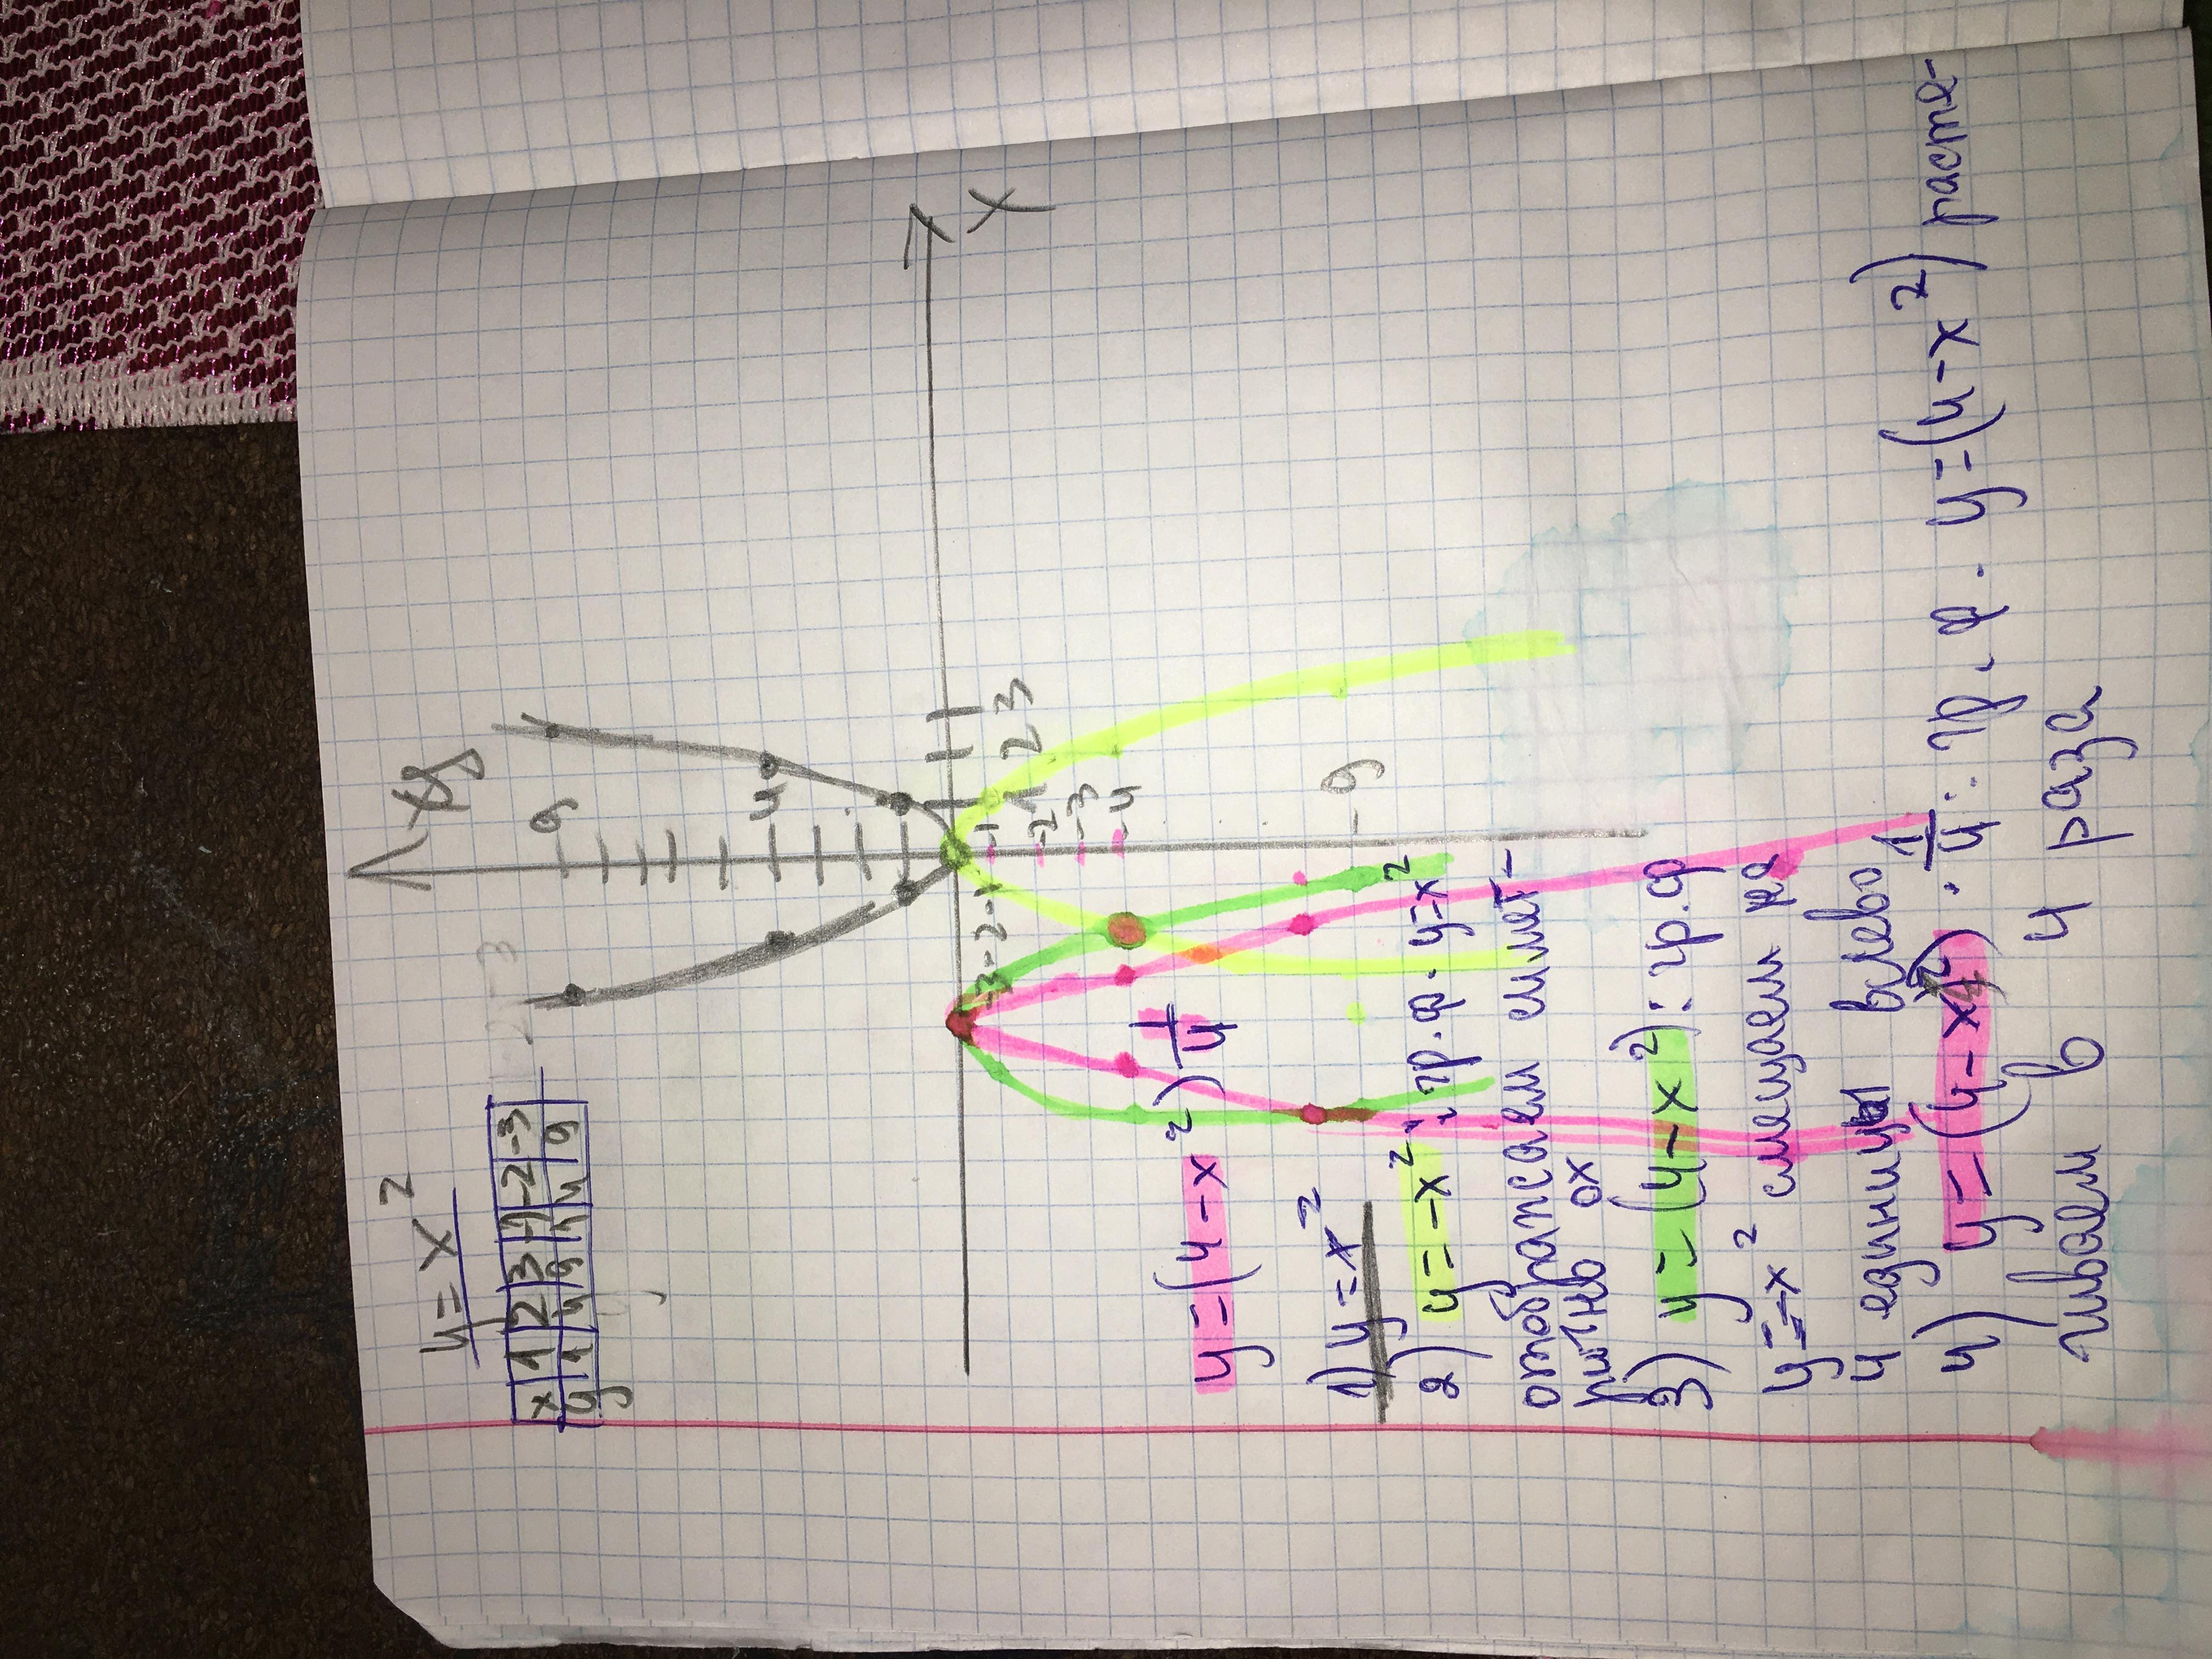 y = x²
x 1 2 3 -1 -2 -3
y 1 4 9 1 4 9
y
9
4
x
-3 -2 -1 1 2 3
-1
-2
-3
-4
-9
y = (4 - x²) 1/4
1) y = x²
2) y = -x²: гр. ф. y = x²
отображаем симмет-
рично ох
3) y = (4 - x²): гр. ф
y = -x² смещаем на
4 единицы влево
4) y = (4 - x²) · 1/4: гр. ф. y = (4 - x²) растя-
гиваем в 4 раза